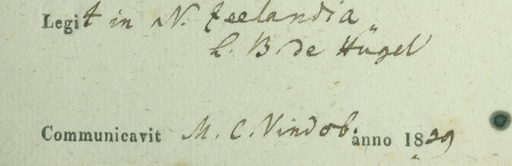 Legit in N. Zeelandia
L. B. de Hügel
Communicavit M. C. Vindob. anno 1839